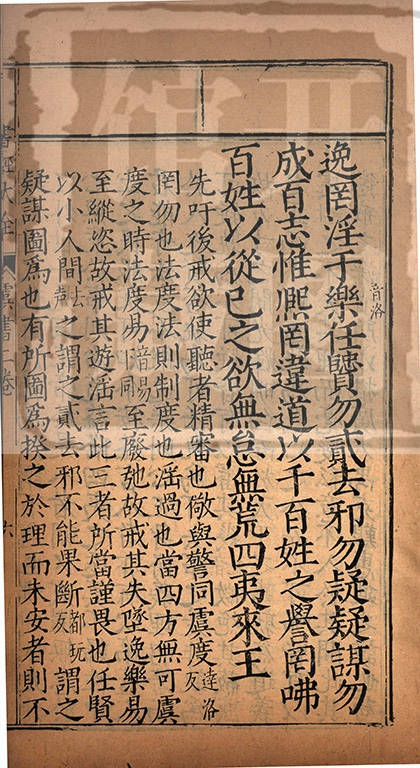 逸罔淫于樂音洛任賢勿貳去邪勿疑疑謀勿
成百志惟熙罔違道以干百姓之譽罔咈
百姓以從己之欲無怠無荒四夷來王
先吁後戒欲使聽者精審也儆與警同虞度達洛反
罔勿也法度法則制度也淫過也當四方無可虞
度之時法度易音同至廢弛故戒其失墜逸樂易
至縱恣故戒其遊淫言此三者所當謹畏也任賢
以小人間去聲之謂之貳去邪不能果斷都玩反謂之
疑謀圖爲也有所圖爲揆之於理而未安者則不
書經大全 虞書二卷 六